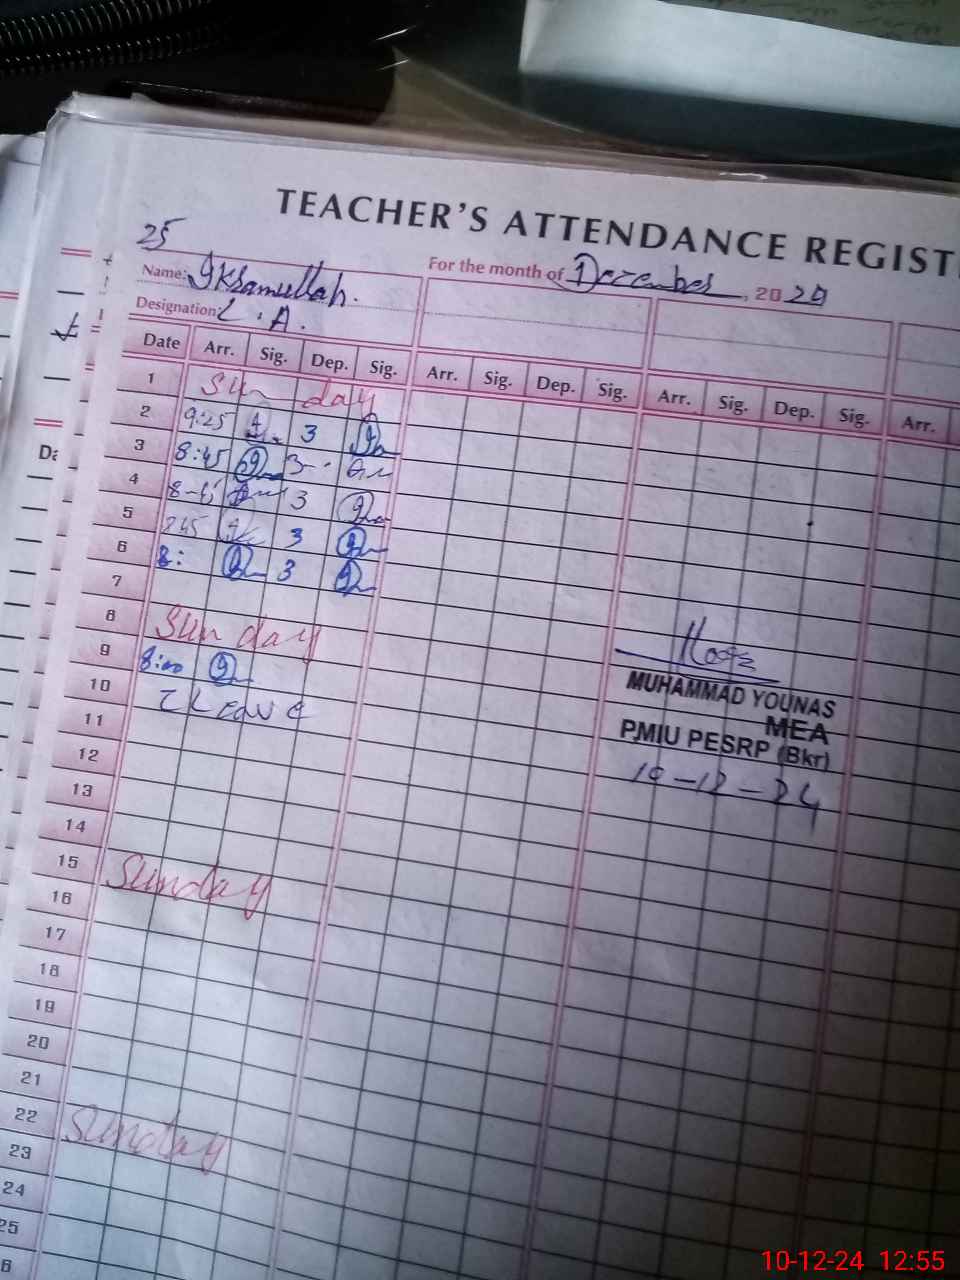 TEACHER'S ATTENDANCE REGIST
25
Name: Ikramullah.
For the month of December, 2024
Designation: L.A.
Date Arr. Sig. Dep. Sig. Arr. Sig. Dep. Sig. Arr. Sig. Dep. Sig. Arr.
1 Sunday
2 9:25 3
3 8:45 3
4 8-45 3
5 745 3
6 8: 3
7
8 Sunday
9 8:00
10 Leave
11
12
13
14
15 Sunday
16
17
18
19
20
21
22 Sunday
23
24
25
6
MUHAMMAD YOUNAS
MEA
PMIU PESRP (Bkr)
10-12-24
10-12-24 12:55